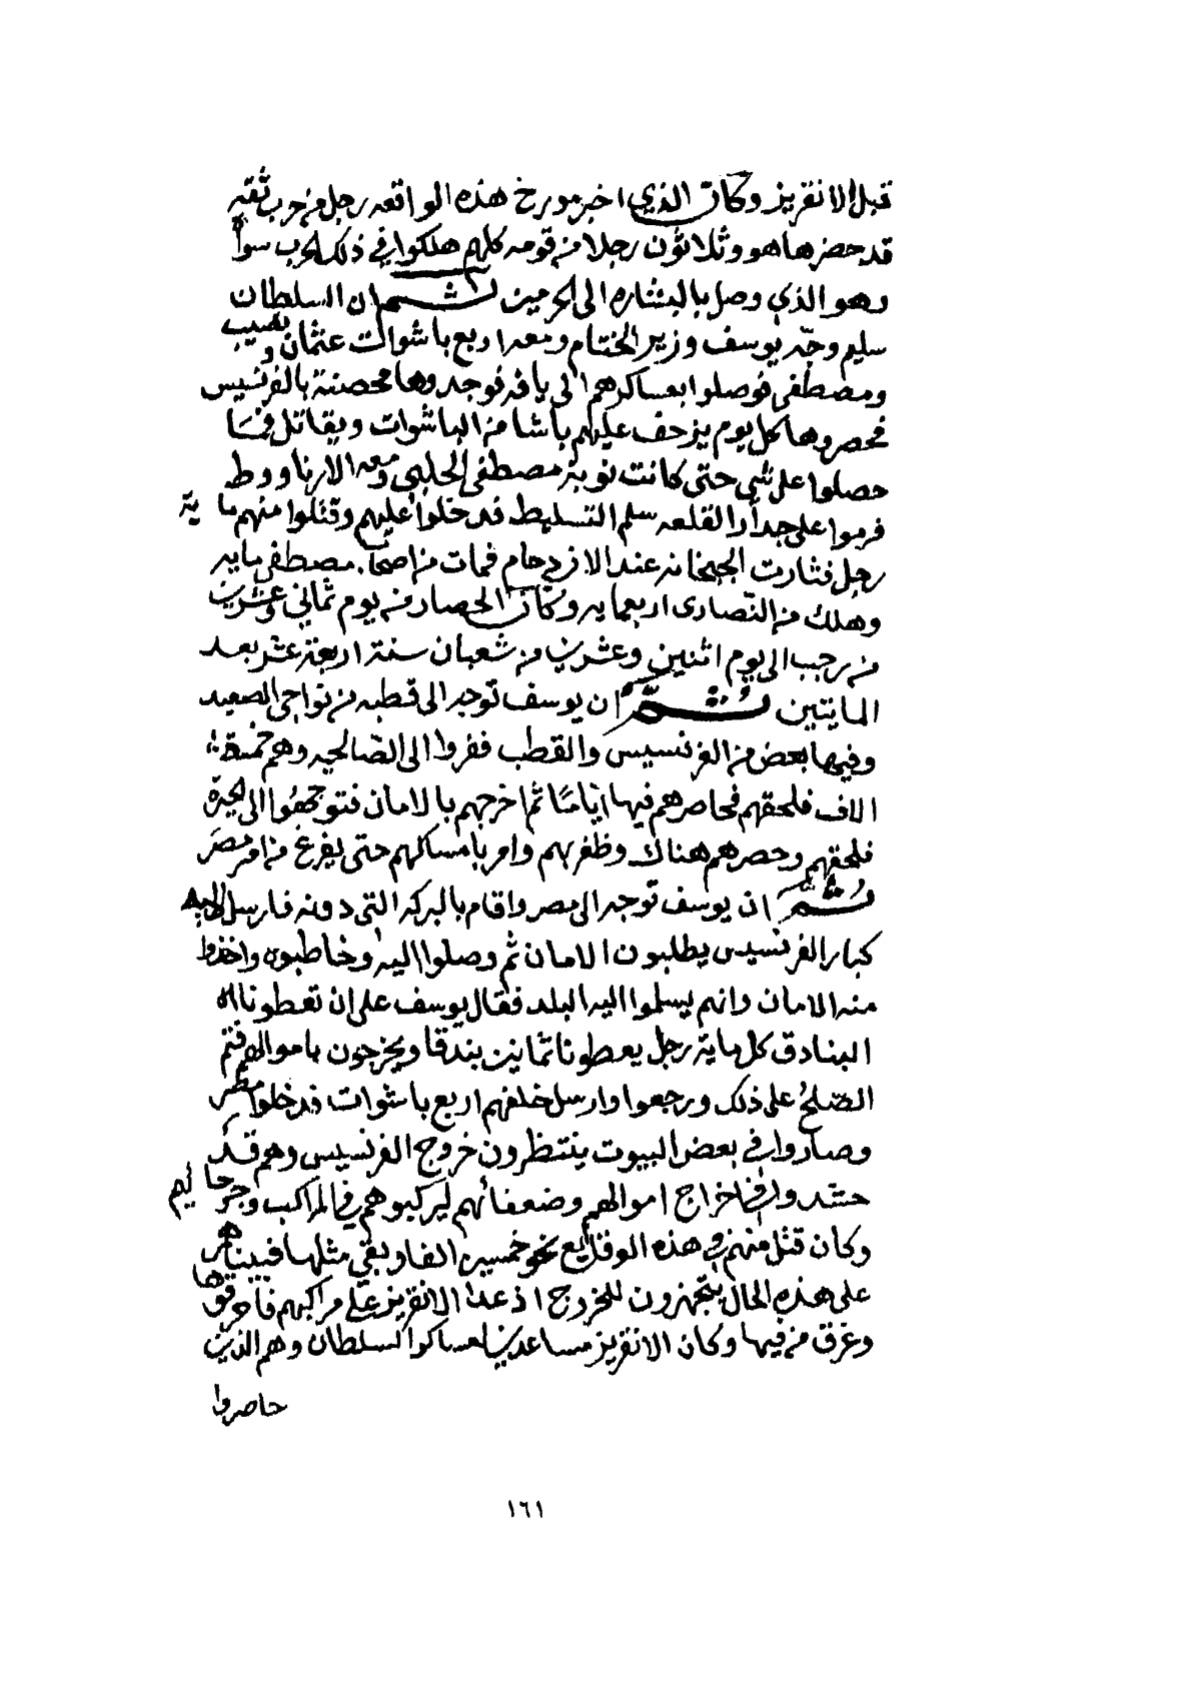 قبل الانقريز وكان الذي اخبر مورخ هذه الواقعه رجل من حرب ثقه
قد حضرها هو وثلاثون رجلا من قومه كلهم هلكوا في ذلك الحرب سوا
وهو الذي وصل بالبشاره الى الحرمين ثم ان السلطان
سليم وجّه يوسف وزير الختام ومعه اربع باشوات عثمان ونصيب
ومصطفى فوصلوا بعساكرهم الى يافه فوجدوها محصنة بالفرنسيس
فحصروها كل يوم يزحف عليهم باشا من الباشوات ويقاتل فمسا
حصلوا على شي حتى كانت نوبة مصطفى الحلبي ومعه الارناووط
فرموا على جدار القلعه سلم التسليط فدخلوا عليهم وقتلوا منهم ماية
رجل فثارت الجبخانه عند الازدحام فمات من اصحاب مصطفى مايه
وهلك من النصارى اربعمايه وكان الحصار من يوم ثماني وعشرين
من رجب الى يوم اثنين وعشرين من شعبان سنة اربعة عشر بعد
المايتين ثُمَّ ان يوسف توجه الى قطيه من نواحي الصعيد
وفيها بعض من الفرنسيس والقطب ففروا الى الصّالحيه وهم خمسة
الاف فلحقهم فحاصرهم فيها ايامًا ثم اخرجهم بالامان فتوجهوا الى الجيزة
فلحقهم وحصرهم هناك وظفر بهم وامر بامساكهم حتى يفرغ من امر مصر
ثُمَّ ان يوسف توجه الى مصر واقام بالبركه التي دونه فارسل اليه
كبار الفرنسيس يطلبون الامان ثم وصلوا اليه وخاطبوه واخذوا
منه الامان وانهم يسلموا اليه البلد فقال يوسف على ان تعطونا
البنادق كل ماية رجل يعطونا ثمانين بندقا ويخرجون باموالهم فتم
الصّلحُ على ذلك ورجعوا وارسل خلفهم اربع باشوات فدخلوا مصر
وصاروا في بعض البيوت ينتظرون خروج الفرنسيس وهم قد
حشدوا في اخراج اموالهم وضعفائهم ليركبوهم في المراكب وجرحائهم
وكان قتل منهم في هذه الوقايع نحو خمسين الفا وبقي مثلها فبينا هم
على هذه الحال يتجهزون للخروج اذ عدا الانقريز على مراكبهم فاحرقوها
وغرق من فيها وكان الانقريز مساعدين لعساكر السلطان وهم الذين
حاصروا
١٦١